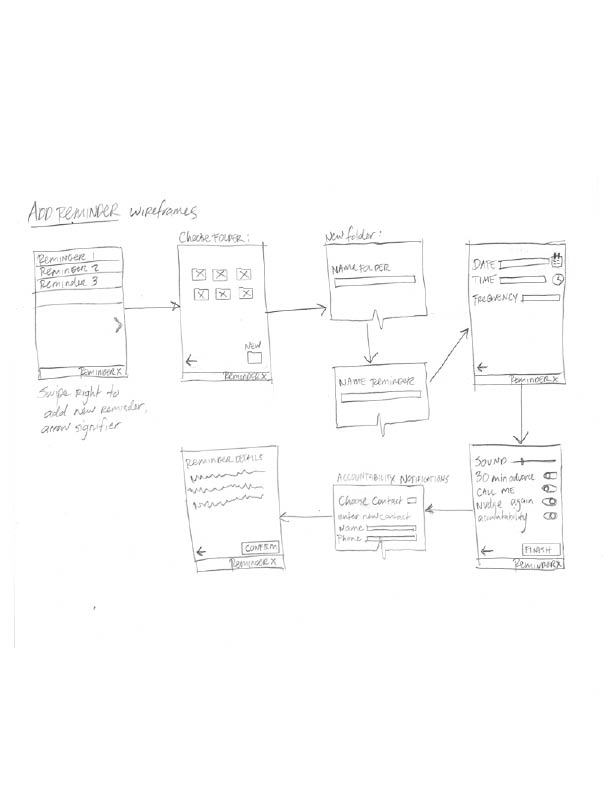 ADD REMINDER wireframes
Choose FOLDER:
New folder:
REMINDER 1
REMINDER 2
REMINDER 3
REMINDER X
Swipe Right to
add new reminder,
arrow signifier
NEW
REMINDER X
NAME FOLDER
NAME REMINDER
DATE
TIME
FREQUENCY
REMINDER X
SOUND
30 min advance
CALL ME
Nudge again
acountability
FINISH
REMINDER X
ACCOUNTABILITY NOTIFICATIONS
Choose Contact
enter new contact
Name
Phone
REMINDER DETAILS
CONFIRM
REMINDER X